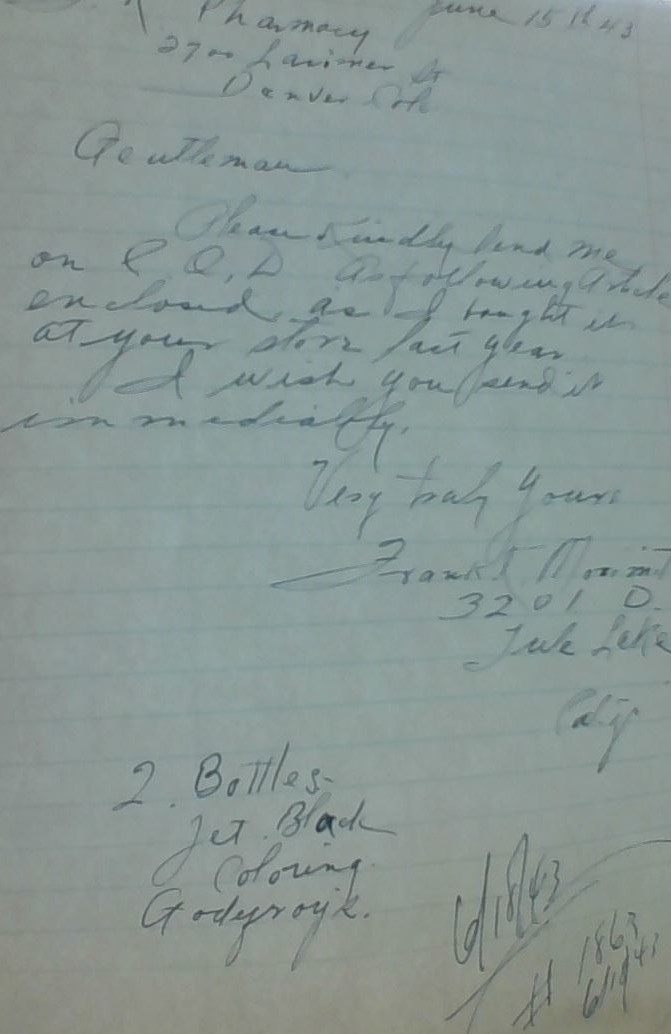 Pharmacy June 15th 43
2700 Larimer St
Denver Colo
Gentleman
Please Kindly send me
on C.O.D. As following Article
enclosed, as I bought it
at your store last year
I wish you send it
immediatly.
Very truly yours
Frank
3201 D.
Tule Lake
Calif
2. Bottles
Jet Black
Coloring
6/18/43
# 1863
6/19/43